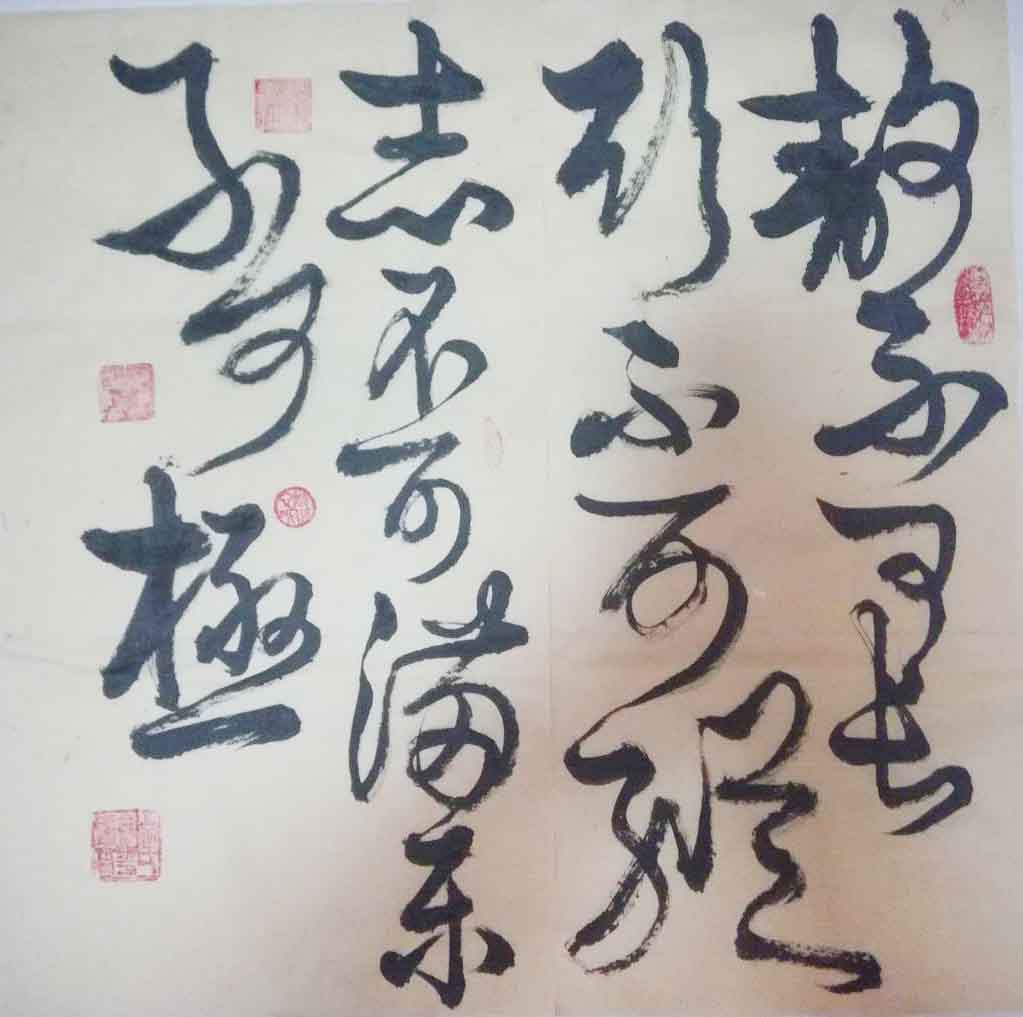 敖不可長
欲不可縱
志不可滿樂
不可極